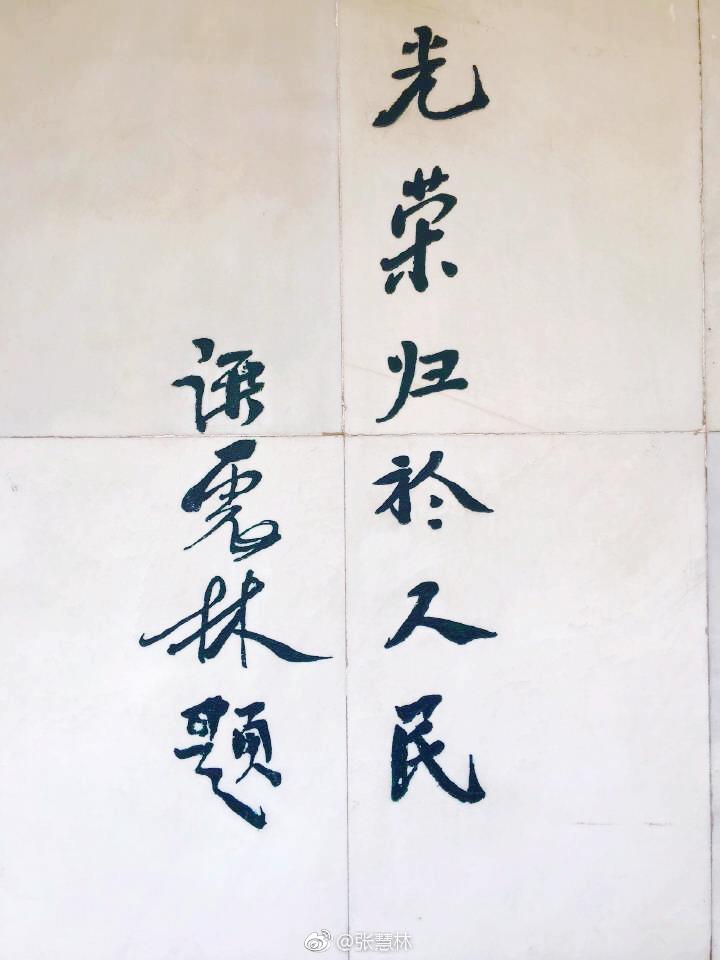 光荣归於人民
谭震林题
@张慧林